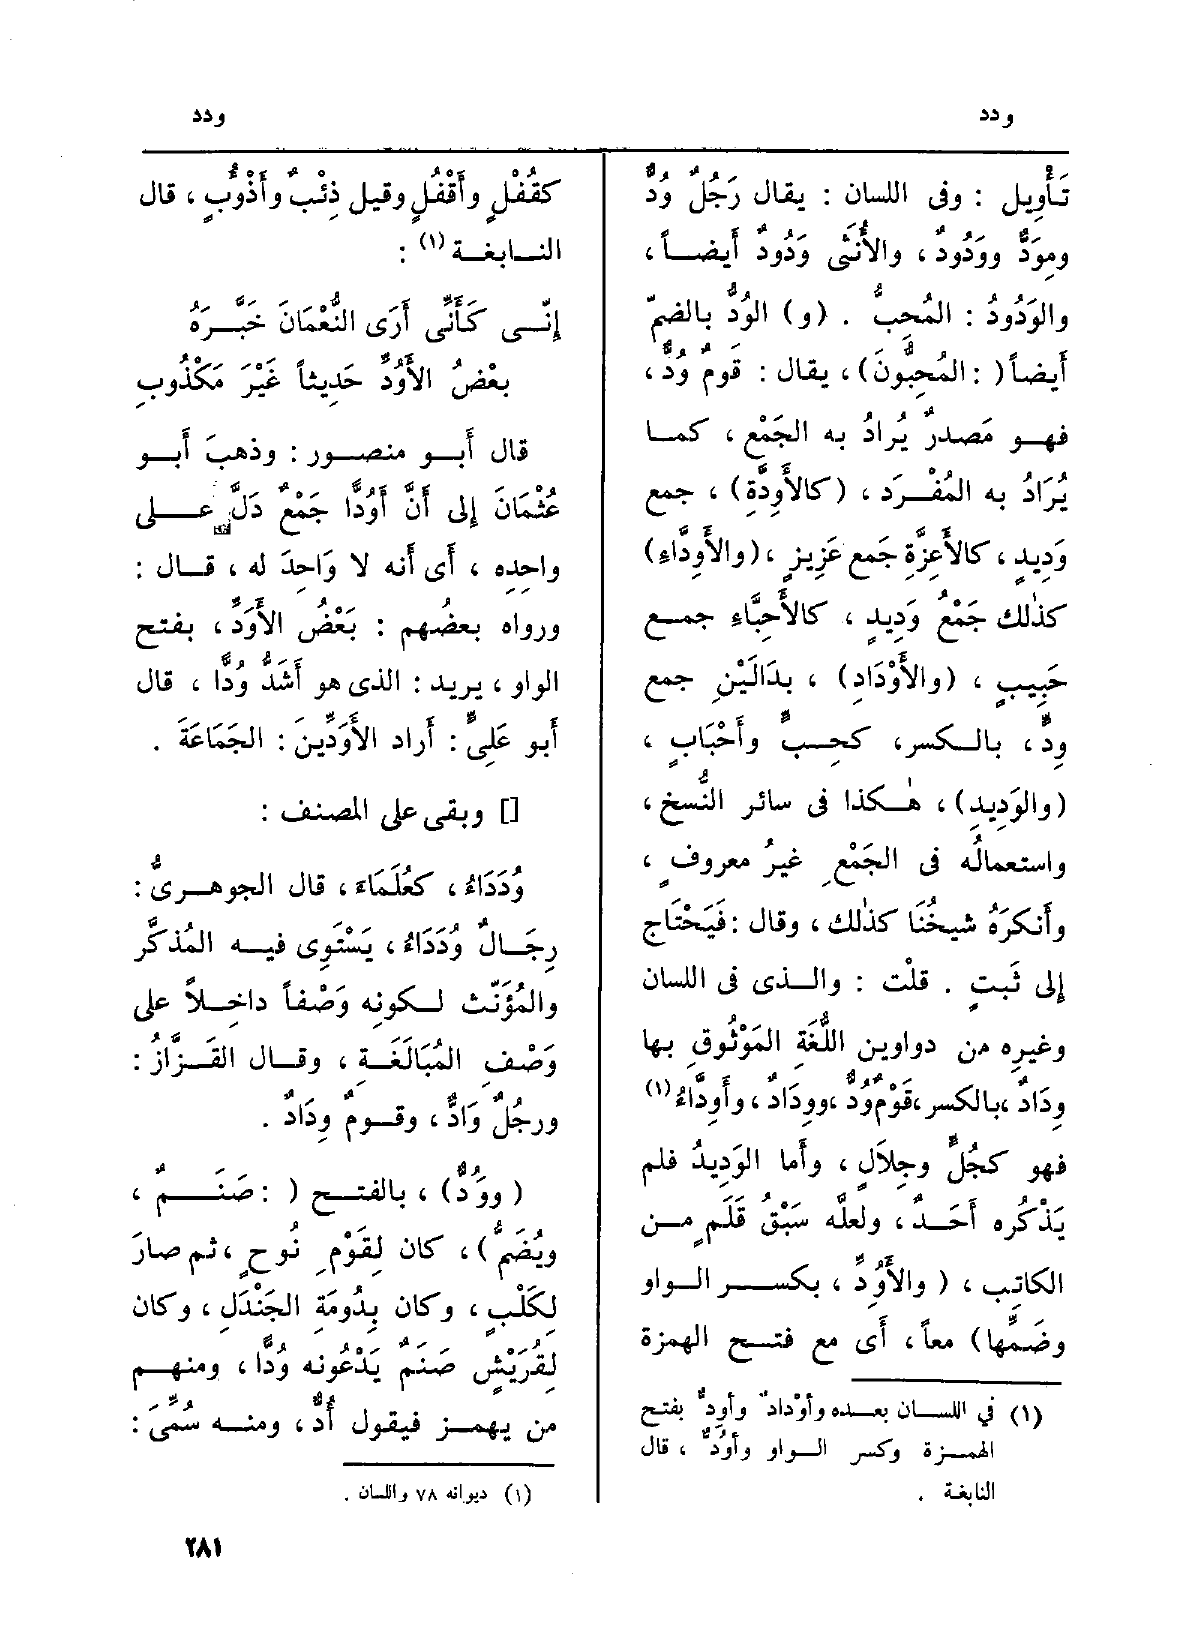 ودد
ودد
تَأْوِيل : وفى اللسان : يقال رَجُلٌ وُدٌّ
ومِوَدٌّ ووَدُودٌ ، والأُنْثَى وَدُودٌ أَيضـاً ،
والوَدُودُ : المُحِبُّ . (و) الوُدُّ بالضمّ
أَيضاً ( : المُحِبُّونَ) ، يقال : قَومٌ وُدٌّ ،
فهـو مَصدرٌ يُرادُ به الجَمْع ، كمـا
يُرَادُ به المُفْـرَد ، (كالأَوِدَّةِ) ، جمع
وَدِيدٍ ، كالأَعِزَّةِ جَمع عَزِيزٍ ، (والأَوِدَّاءِ)
كذٰلك جَمْعُ وَدِيدٍ ، كالأَحِبَّاءِ جمـع
حَبِيبٍ ، (والأَوْدَادِ) ، بدَالَيْنِ جمع
وِدٍّ ، بالـكسر ، كحِبٍّ وأَحْبَابٍ ،
(والوَدِيدِ) ، هٰكذا فى سائر النُّسخ ،
واستعمالُه فى الجَمْعِ غيرُ معروفٍ ،
وأَنكرَهُ شيخُنَا كذٰلك ، وقال : فَيَحْتَاج
إلى ثَبتٍ . قلْت : والـذى فى اللسان
وغيرِه من دواوين اللُّغَةِ المَوْثُوقِ بها
وِدَادٌ ، بالكسر ، قَوْمٌ وُدٌّ ، ووِدَادٌ ، وأَوِدَّاءُ (١)
فهو كجُلٍّ وجِلَالٍ ، وأَما الوَدِيدُ فلم
يَذْكُره أَحَـدٌ ، ولعلَّه سَبْقُ قَلَمٍ مـن
الكاتب ، ( والأَوُدِّ ، بكسـر الـواو
وضَمِّها) معاً ، أَى مع فتـح الهمزة
(١) في اللسـان بعـده وأوْدادٌ وأوِدٌّ بفتح
الهمـزة وكسر الـواو وأوُدٌّ ، قال
النابغة .
كقُفْلٍ وأَقْفُلٍ وقيل ذِئْبٌ وأَذْؤُبٍ ، قال
النـابغـة (١) :
إِنِّـى كَأَنِّى أَرَى النُّعْمَانَ خَبَّـرَهُ
بعْضُ الأَوُدِّ حَدِيثاً غَيْرَ مَكْذُوبِ
قال أَبـو منصـور : وذهبَ أَبـو
عُثْمَانَ إِلى أَنَّ أَوُدًّا جَمْعٌ دَلَّ عـلى
واحِدِه ، أَى أَنه لا وَاحِدَ له ، قـال :
ورواه بعضُهم : بَعْضُ الأَوَدِّ ، بفتح
الواو ، يريد : الذى هو أَشَدُّ وُدًّا ، قال
أَبو عَلِىٍّ : أَراد الأَوَدِّينَ : الجَمَاعَةَ .
[] وبقى على المصنف :
وُدَدَاءُ ، كعُلَمَاءَ ، قال الجوهـرىُّ :
رِجَـالٌ وُدَدَاءُ ، يَسْتَوِى فيـه المُذكَّر
والمُؤَنّث لـكونِه وَصْفاً داخِـلاً على
وَصْفِ المُبَالَغَـة ، وقـال القَـزَّازُ :
ورجُلٌ وَادٌّ ، وقـومٌ وِدَادٌ .
( ووَدٌّ) ، بالفتـح ( : صَنَـمٌ ،
ويُضَمُّ) ، كان لِقَوْمِ نُوحٍ ، ثم صارَ
لِكَلْبٍ ، وكان بِدُومَةِ الجَنْدَلِ ، وكان
لِقُرَيْشٍ صَنَمٌ يَدْعُونه وُدًّا ، ومنهـم
من يهمـز فيقول أُدٌّ ، ومنـه سُمِّىَ :
(١) ديوانه ٧٨ واللسان .
٢٨١